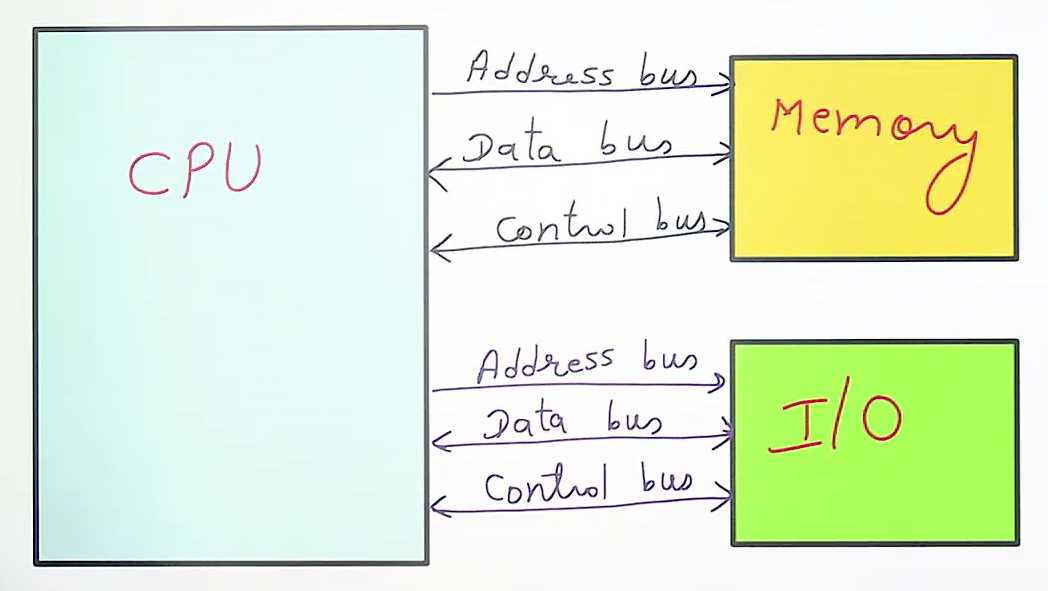 CPU
Address bus
Data bus
Control bus
Memory
Address bus
Data bus
Control bus
I/O